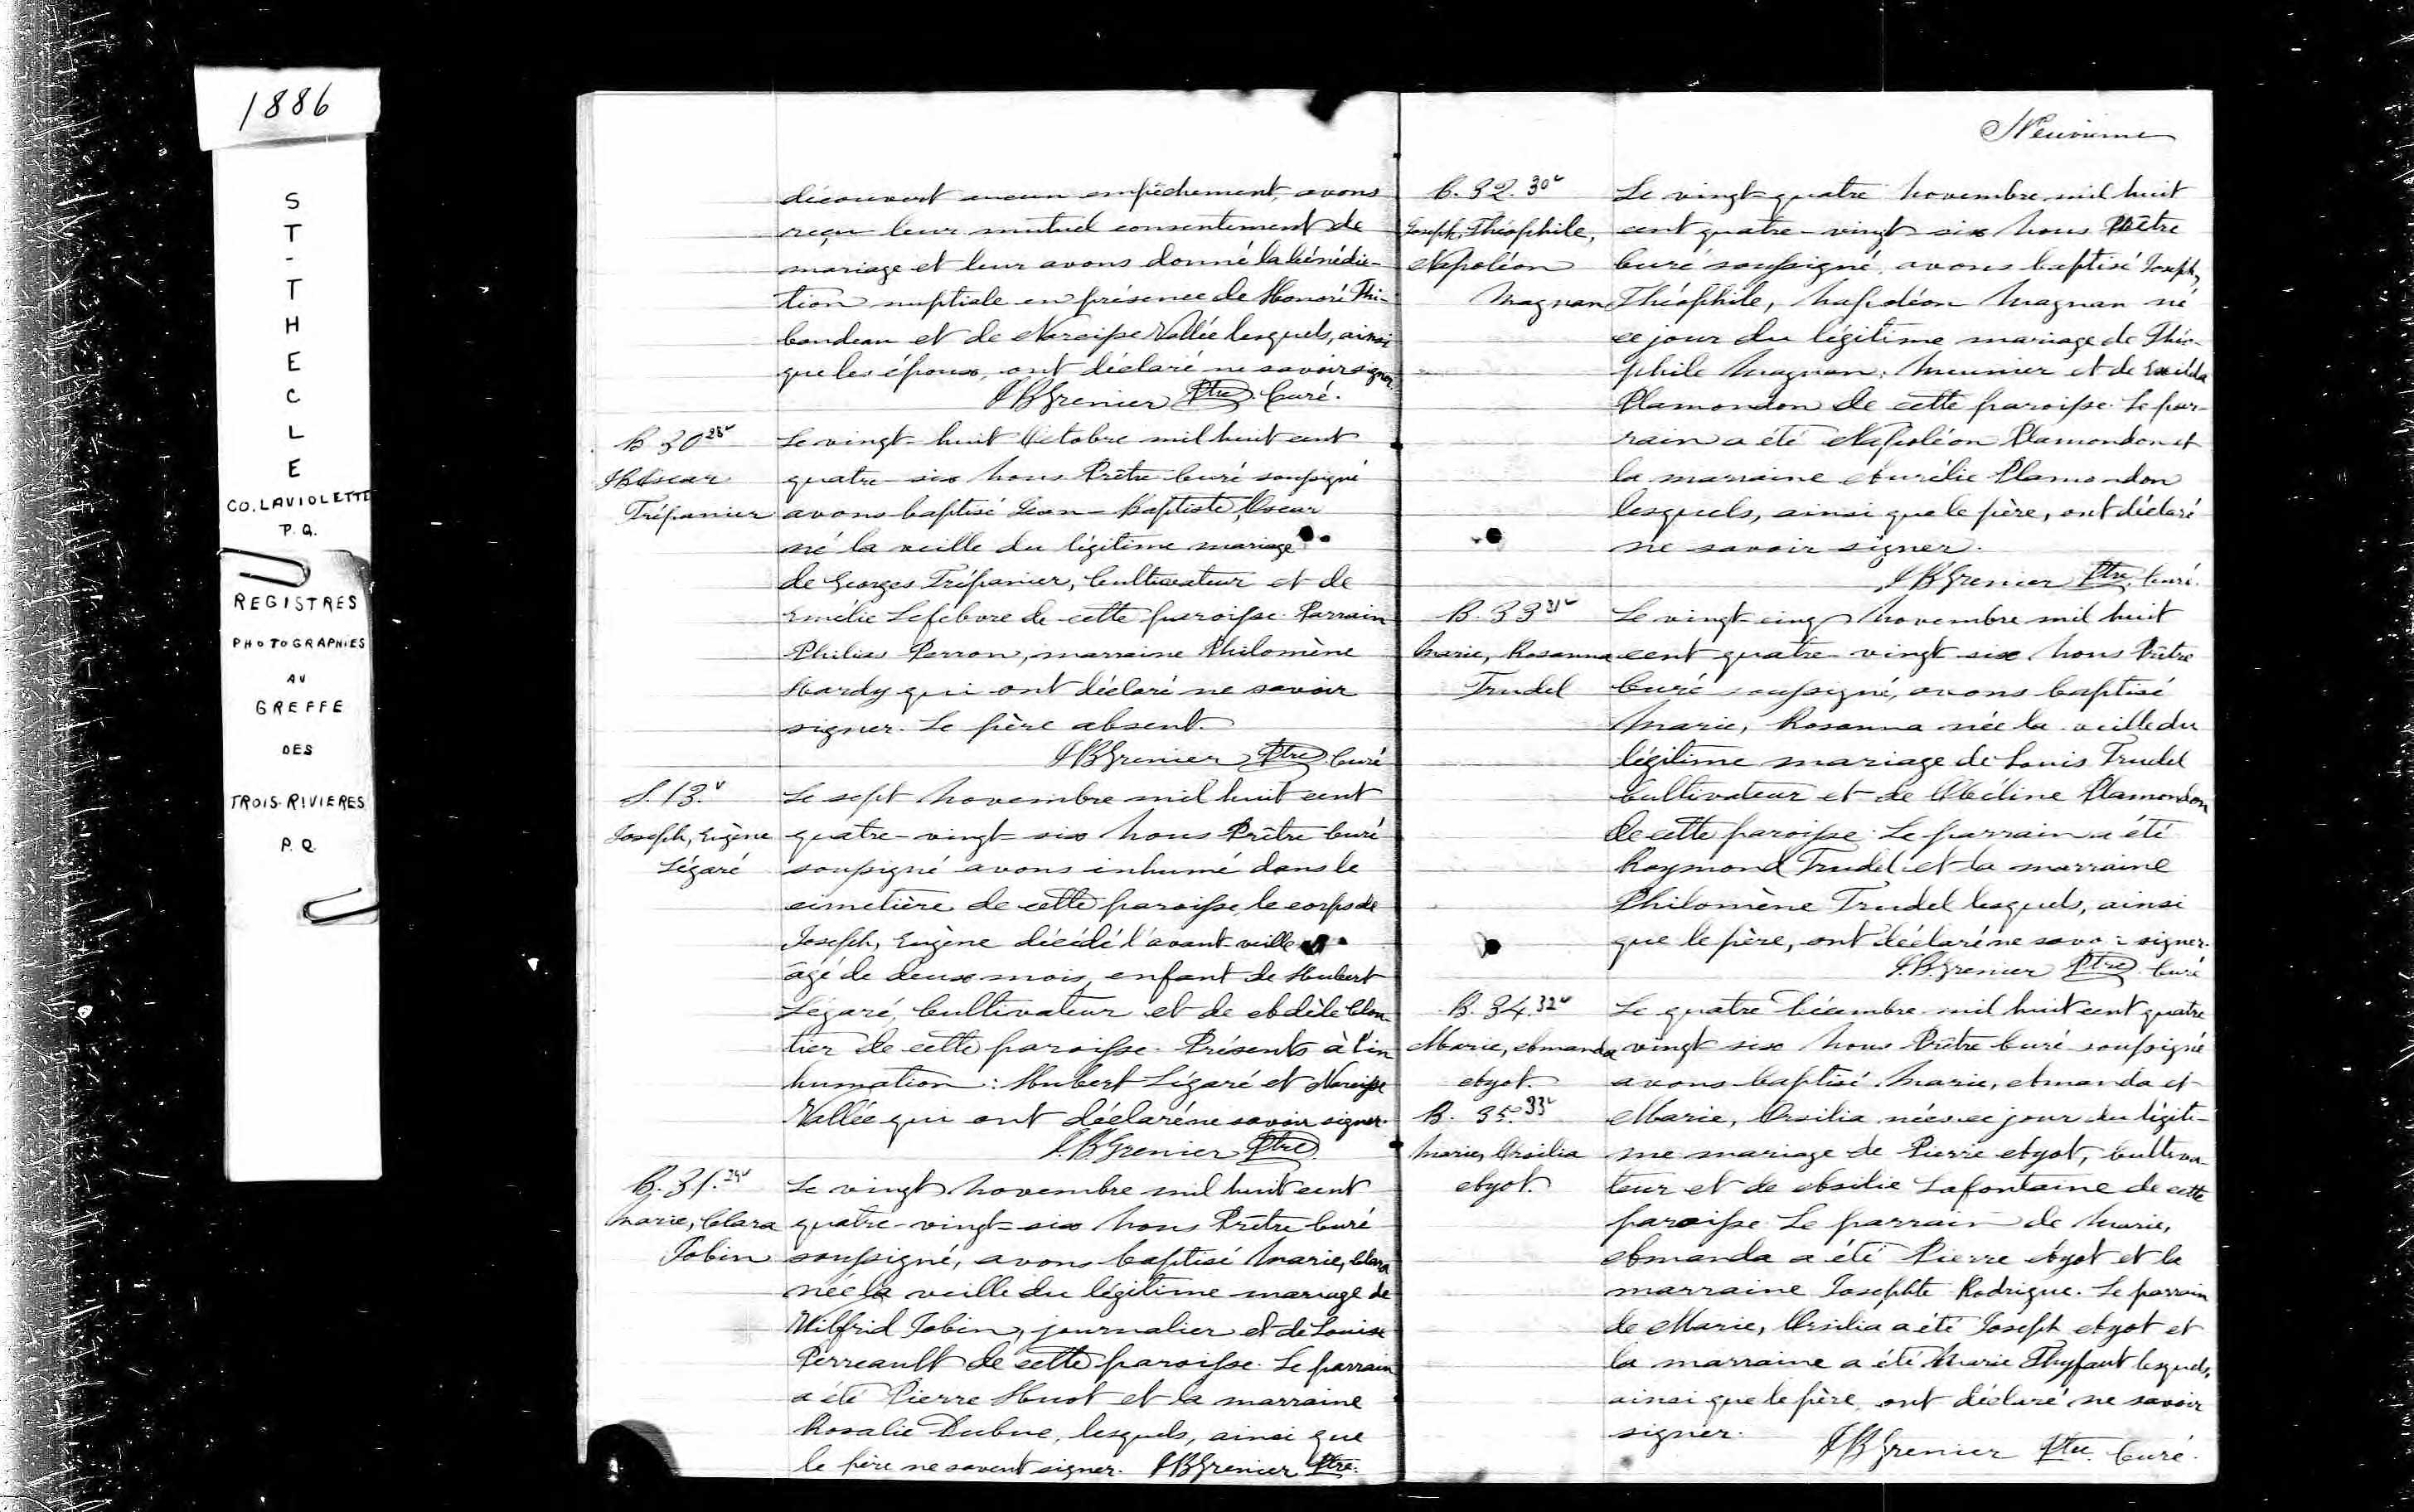 1886
ST-THECLE
CO. LAVIOLETTE
P.Q.
REGISTRES
PHOTOGRAPHIES
AU
GREFFE
DES
TROIS-RIVIERES
P.Q.
découvert aucun empêchement, avons
reçu leur mutuel consentement de
mariage et leur avons donné la bénédic-
tion nuptiale en présence de Honoré Thi-
baudeau et de Narcisse Vallée lesquels, ainsi
que les époux, ont déclaré ne savoir signer.
J B Grenier Ptre. Curé.
B 30 28v
JB Oscar
Trépanier
Le vingt-huit Octobre mil huit cent
quatre-six Nous Prêtre Curé soussigné
avons baptisé Jean-Baptiste, Oscar
né la veille du légitime mariage
de Georges Trépanier, Cultivateur et de
Emélie Lefebvre de cette paroisse. Parrain
Philias Perron, marraine Philomène
Hardy qui ont déclaré ne savoir
signer. Le père absent.
J B Grenier Ptre Curé
S. 13.v
Joseph, Eugène
Légaré
Le sept Novembre mil huit cent
quatre-vingt-six Nous Prêtre Curé
soussigné avons inhumé dans le
cimetière de cette paroisse, le corps de
Joseph, Eugène décédé l'avant-veille
âgé de deux mois, enfant de Hubert
Légaré, Cultivateur et de Adèle Clou-
tier de cette paroisse. Présents à l'in
humation: Hubert Légaré et Narcisse
Vallée qui ont déclaré ne savoir signer.
J.B. Grenier Ptre
B. 31. 29v
Marie, Clara
Jobin
Le vingt Novembre mil huit cent
quatre-vingt-six Nous Prêtre Curé
soussigné, avons baptisé Marie, Clara
née la veille du légitime mariage de
Wilfrid Jobin, journalier et de Louise
Perreault de cette paroisse. Le parrain
a été Pierre Huot et la marraine
Rosalie Dubuc, lesquels, ainsi que
le père ne savent signer. J B Grenier Ptre.
Neuvième
B. 32. 30v
Joseph, Théophile,
Napoléon
Magnan
Le vingt-quatre Novembre mil huit
cent quatre-vingt six Nous Prêtre
Curé soussigné, avons baptisé Joseph,
Théophile, Napoléon Magnan né
ce jour du légitime mariage de Théo-
phile Magnan, Meunier et de Exilda
Plamondon de cette paroisse. Le par-
rain a été Napoléon Plamondon et
la marraine Aurélie Plamondon
lesquels, ainsi que le père, ont déclaré
ne savoir signer.
J B Grenier Ptre. Curé.
B. 33 31v
Marie, Rosanna
Trudel
Le vingt-cinq Novembre mil huit
cent quatre-vingt six Nous Prêtre
Curé soussigné, avons baptisé
Marie, Rosanna née la veille du
légitime mariage de Louis Trudel
Cultivateur et de Obéline Plamondon
de cette paroisse. Le parrain a été
Raymond Trudel et la marraine
Philomène Trudel lesquels, ainsi
que le père, ont déclaré ne savoir signer.
J.B. Grenier Ptre Curé
B. 34. 32v
Marie, Amanda
Ayot.
B. 35. 33v
Marie, Ursilia
Ayot.
Le quatre Décembre mil huit cent quatre
vingt six Nous Prêtre Curé soussigné
avons baptisé Marie, Amanda et
Marie, Ursilia nées ce jour du légiti-
me mariage de Pierre Ayot, Cultiva-
teur et de Asilie Lafontaine de cette
paroisse. Le parrain de Marie,
Amanda a été Pierre Ayot et la
marraine Josephte Rodrigue. Le parrain
de Marie, Ursilia a été Joseph Ayot et
la marraine a été Marie lesquels,
ainsi que le père, ont déclaré ne savoir
signer.
J B Grenier Ptre. Curé.